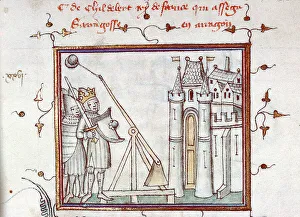 C de Childebert roy de france qui assega
Sarragosse en arragon